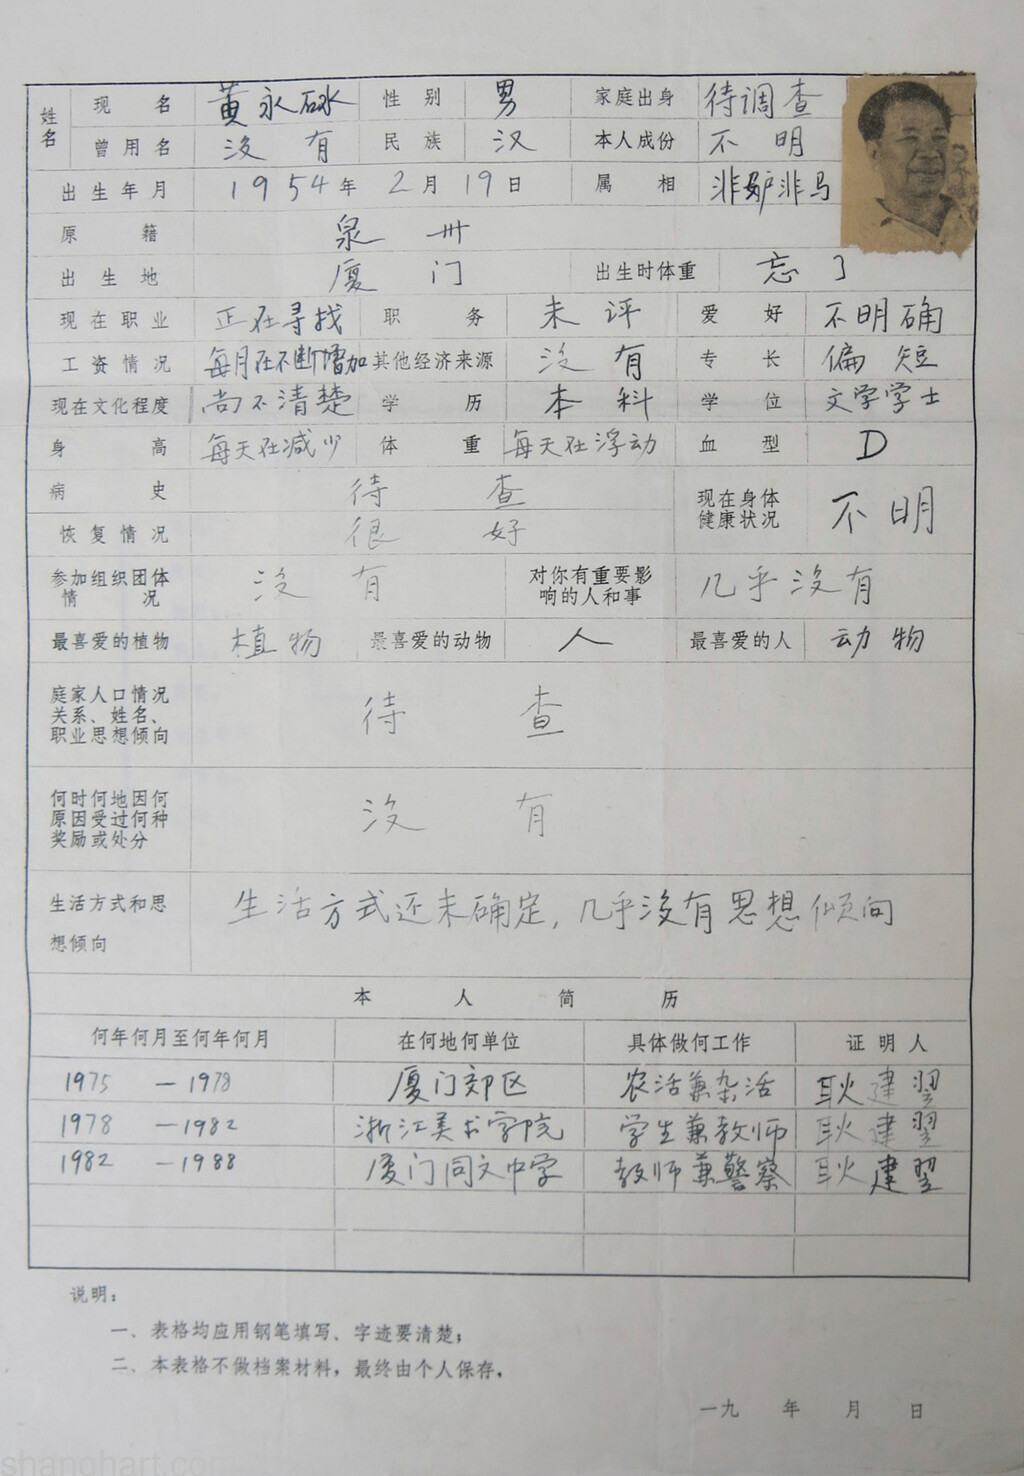 姓名 现名 黄永砯 性别 男 家庭出身 待调查
曾用名 没有 民族 汉 本人成份 不明
出生年月 1954年2月19日 属相 非驴非马
原籍 泉州
出生地 厦门 出生时体重 忘了
现在职业 正在寻找 职务 未评 爱好 不明确
工资情况 每月在不断增加 其他经济来源 没有 专长 偏短
现在文化程度 尚不清楚 学历 本科 学位 文学学士
身高 每天在减少 体重 每天在浮动 血型 D
病史 待查 现在身体健康状况 不明
恢复情况 很好
参加组织团体情况 没有 对你有重要影响的人和事 几乎没有
最喜爱的植物 植物 最喜爱的动物 人 最喜爱的人 动物
庭家人口情况
关系、姓名、 待查
职业思想倾向
何时何地因何
原因受过何种 没有
奖励或处分
生活方式和思 生活方式还未确定,几乎没有思想倾向
想倾向
本人简历
何年何月至何年何月 在何地何单位 具体做何工作 证明人
1975 — 1978 厦门郊区 农活兼杂活 耿建翌
1978 — 1982 浙江美术学院 学生兼教师 耿建翌
1982 — 1988 厦门同文中学 教师兼警察 耿建翌
说明:
一、表格均应用钢笔填写、字迹要清楚;
二、本表格不做档案材料,最终由个人保存,
一九 年 月 日
shanghart.com